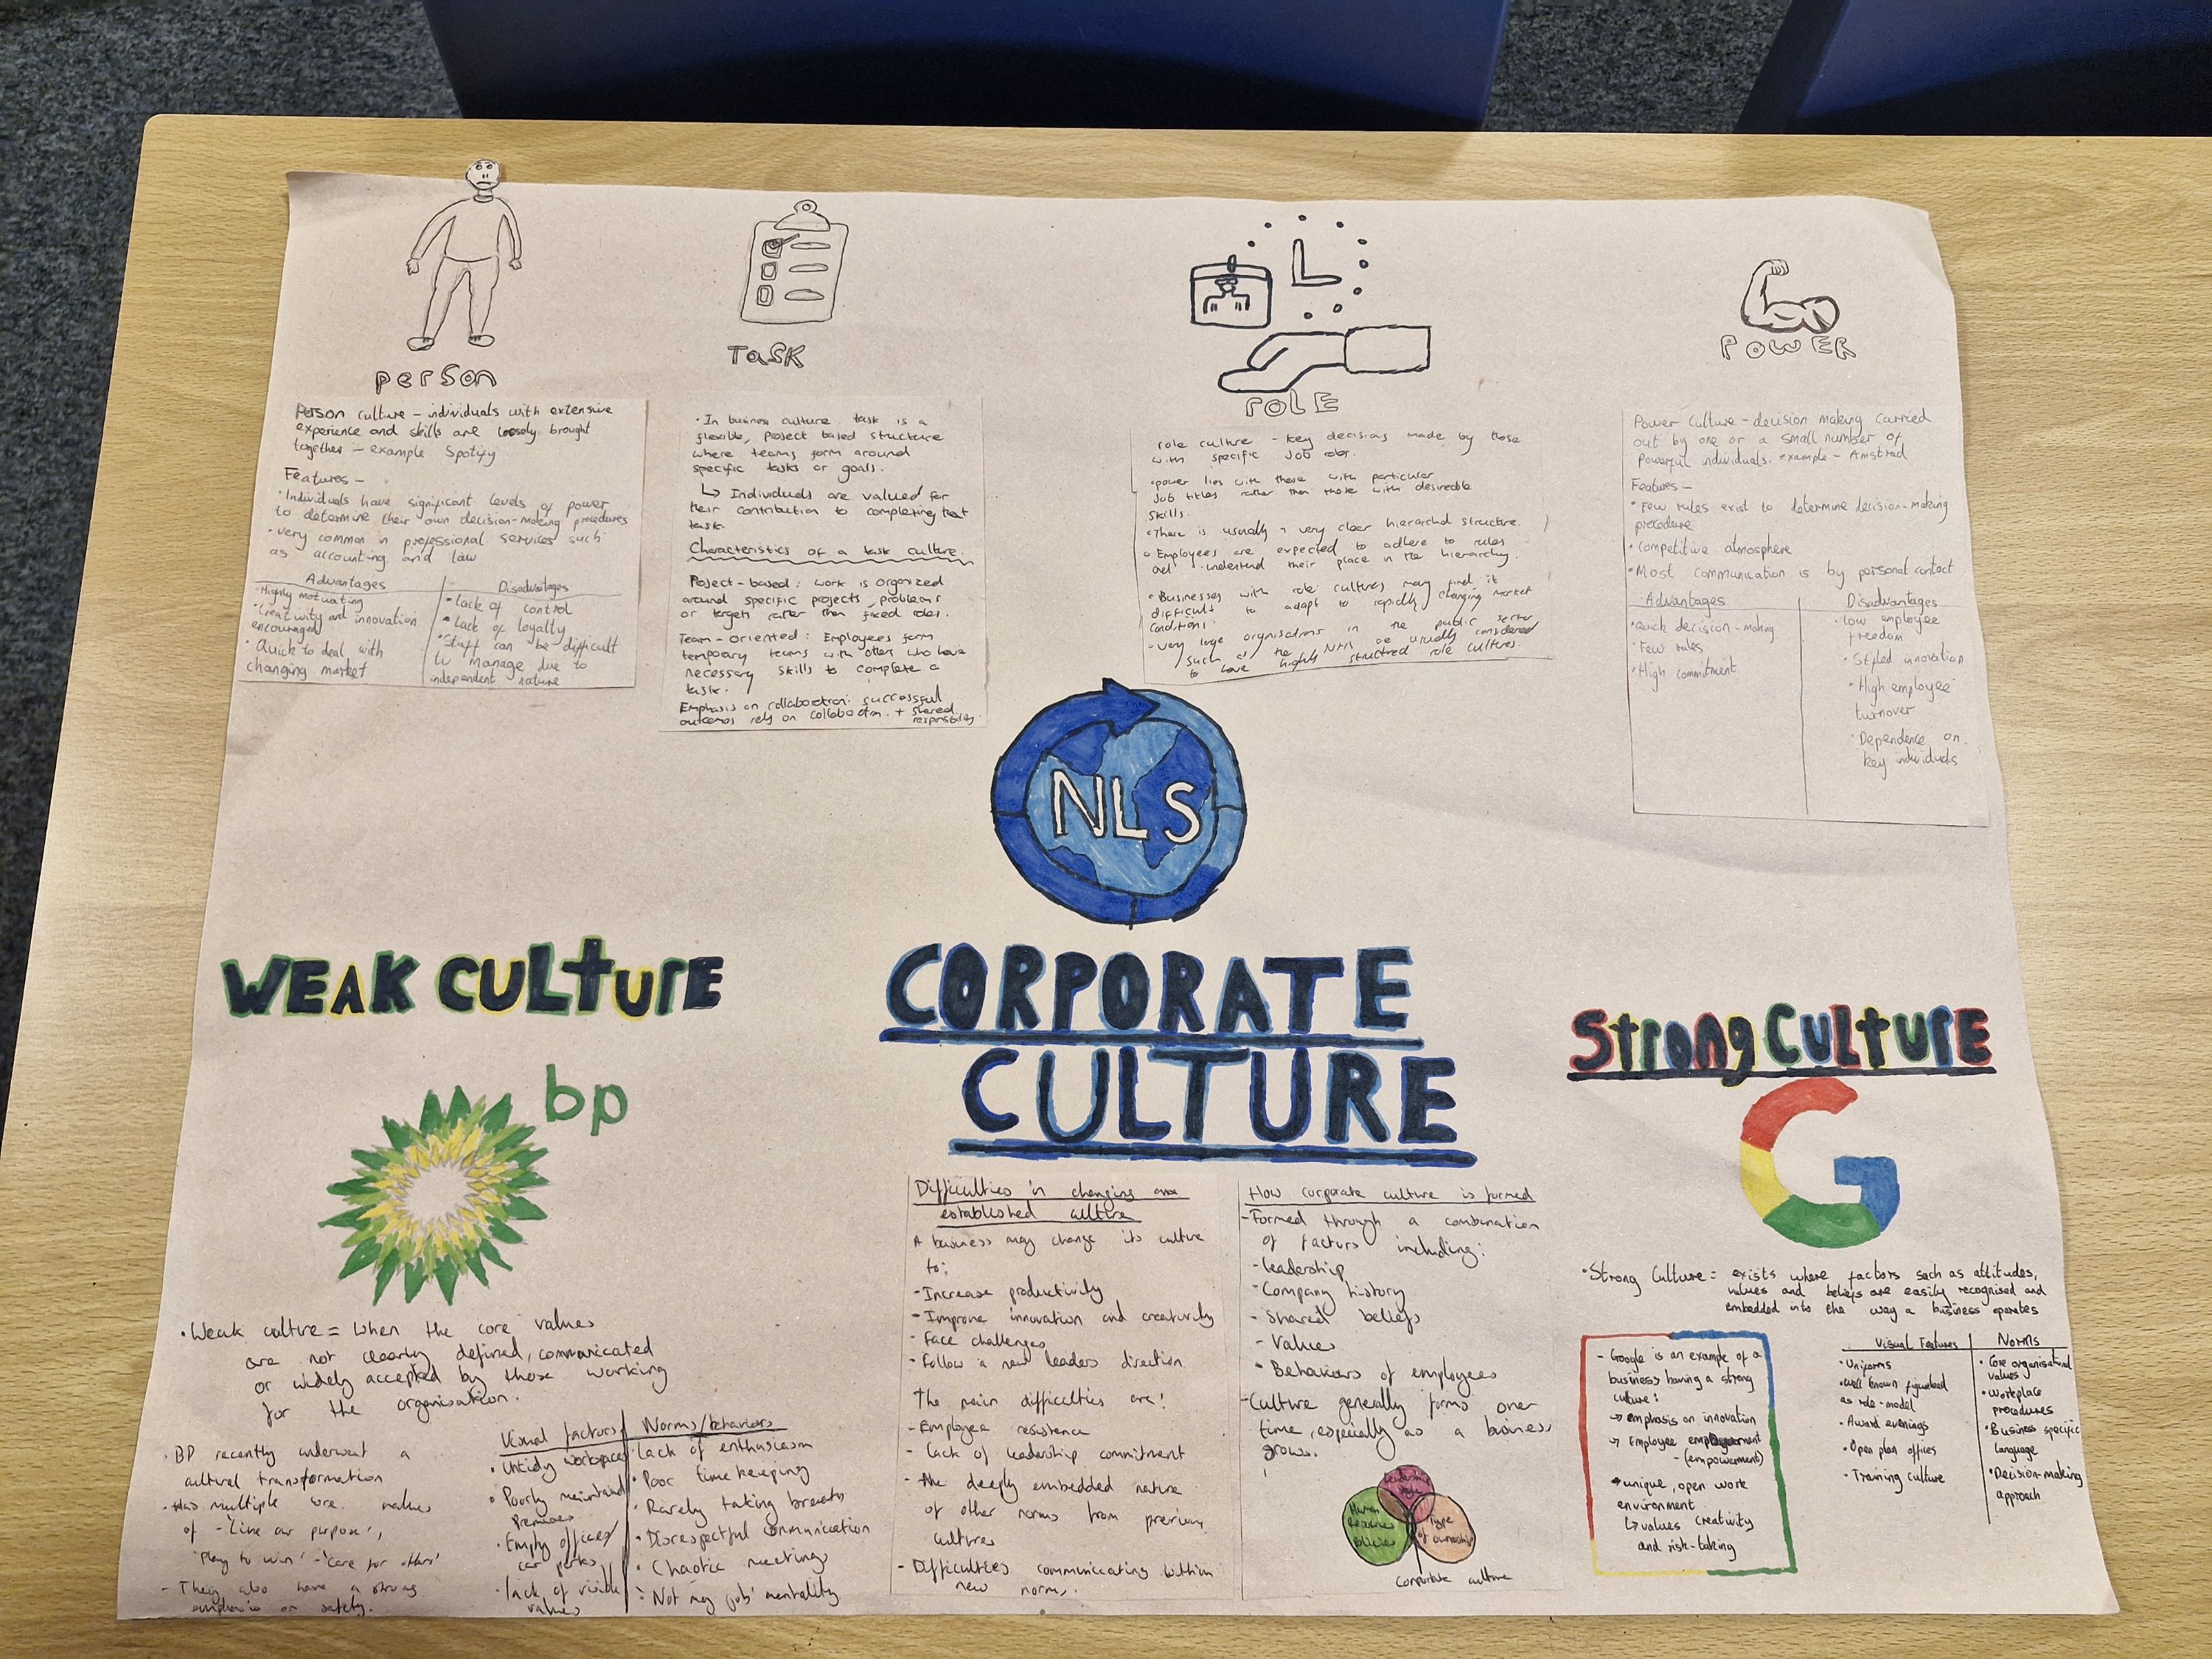 person
Person culture - individuals with extensive
experience and skills are loosely brought
together - example Spotify
Features -
• Individuals have significant levels of power
to determine their own decision-making procedures
• very common in professional services such
as accounting and law
Advantages
• Highly motivating
• Creativity and innovation
encouraged
• Quick to deal with
changing market
Disadvantages
• Lack of control
• Lack of loyalty
• Staff can be difficult
to manage due to
independent nature
TaSK
• In business culture task is a
flexible, project based structure
where teams form around
specific tasks or goals.
↳ Individuals are valued for
their contribution to completing that
task.
Characteristics of a task culture.
Project-based: work is organized
around specific projects, problems
or targets rather than fixed roles.
Team-oriented: Employees form
temporary teams with others who have
necessary skills to complete a
task.
Emphasis on collaboration: successful
outcomes rely on collaboration. + shared
responsibility.
rOLE
role culture - key decisions made by those
with specific job roles.
• power lies with those with particular
Job titles rather than those with desireable
skills.
• There is usually a very clear hierarchal structure.
• Employees are expected to adhere to rules
and understand their place in the hierarchy.
• Businesses with role cultures may find it
difficult to adapt to rapidly changing market
conditions.
• very large organisations in the public sector
such as the NHS are usually considered
to have highly structured role cultures.
POWER
Power Culture - decision making carried
out by one or a small number of
powerful individuals. example - Amstrad
Features -
• Few rules exist to determine decision-making
procedure
• Competitive atmosphere
• Most communication is by personal contact
Advantages
• Quick decision-making
• Few rules
• High commitment
Disadvantages
• low employee
freedom
• Stifled innovation
• High employee
turnover
• Dependence on
key individuals
NLS
CORPORATE
CULTURE
WEAK CULTURE
bp
• Weak culture = When the core values
are not clearly defined, communicated
or widely accepted by those working
for the organisation.
• BP recently underwent a
cultural transformation
- Has multiple core values
of - 'Live our purpose',
'Play to win' - 'Care for others'
- They also have a strong
emphasis on safety.
Visual factors
• Untidy workspace
• Poorly maintained
premises
• Empty offices/
car parks
• lack of visible
values
Norms/behaviors
• Lack of enthusiasm
• Poor timekeeping
• Rarely taking breaks
• Disrespectful communication
• Chaotic meetings
• 'Not my job' mentality
Difficulties in changing an
established culture
A business may change its culture
to:
- Increase productivity
- Improve innovation and creativity
- Face challenges
- Follow a new leaders direction
The main difficulties are:
- Employee resistence
- lack of leadership commitment
- the deeply embedded nature
of other norms from previous
cultures
- Difficulties communicating within
new norms.
How corporate culture is formed
- Formed through a combination
of factors including:
- leadership
- Company history
- Shared beliefs
- Values
• Behaviours of employees
- Culture generally forms over
time, especially as a business
grows.
Leadership
style
Human
Resources
policies
Type
of ownership
Corporate culture
Strong CULTURE
G
• Strong Culture = exists where factors such as attitudes,
values and beliefs are easily recognised and
embedded into the way a business operates
- Google is an example of a
business having a strong
culture:
→ emphasis on innovation
→ Employee
- (empowerment)
→ unique, open work
environment
↳ values creativity
and risk-taking
Visual Features
• Uniforms
• Well known figurehead
as role-model
• Award evenings
• Open plan offices
• Training culture
Norms
• Core organisational
values
• Workplace
procedures
• Business specific
language
• Decision-making
approach